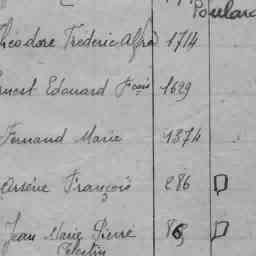 Poulard
Théodore Fréderic Alfred 1714
Ernest Edouard Fçois 1629
Fernand Marie 1874
Arsène François 286
Jean Marie Pierre
Célestin